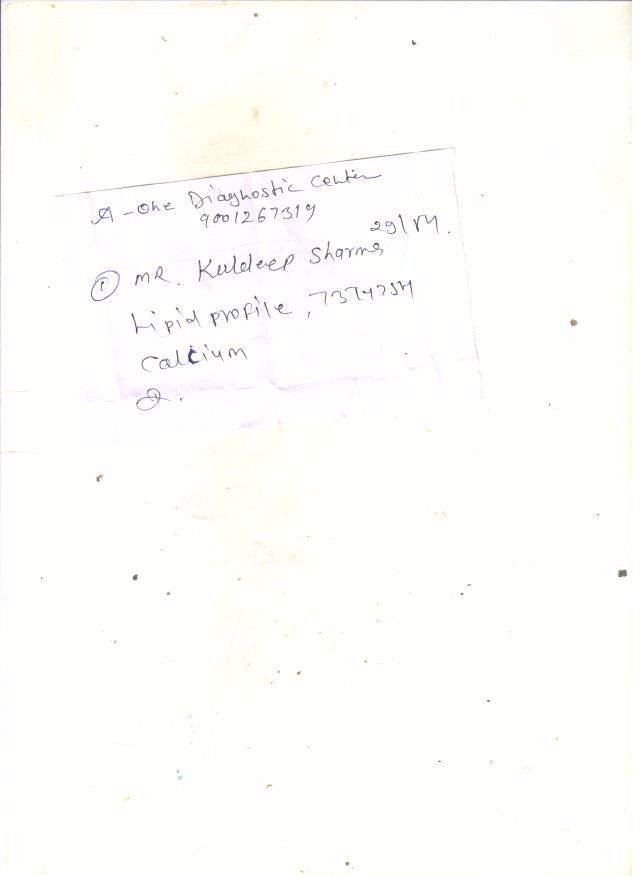 A-One Diagnostic Center
9001267319
29/M.
① MR. Kuldeep Sharma
Lipid profile,
Calcium